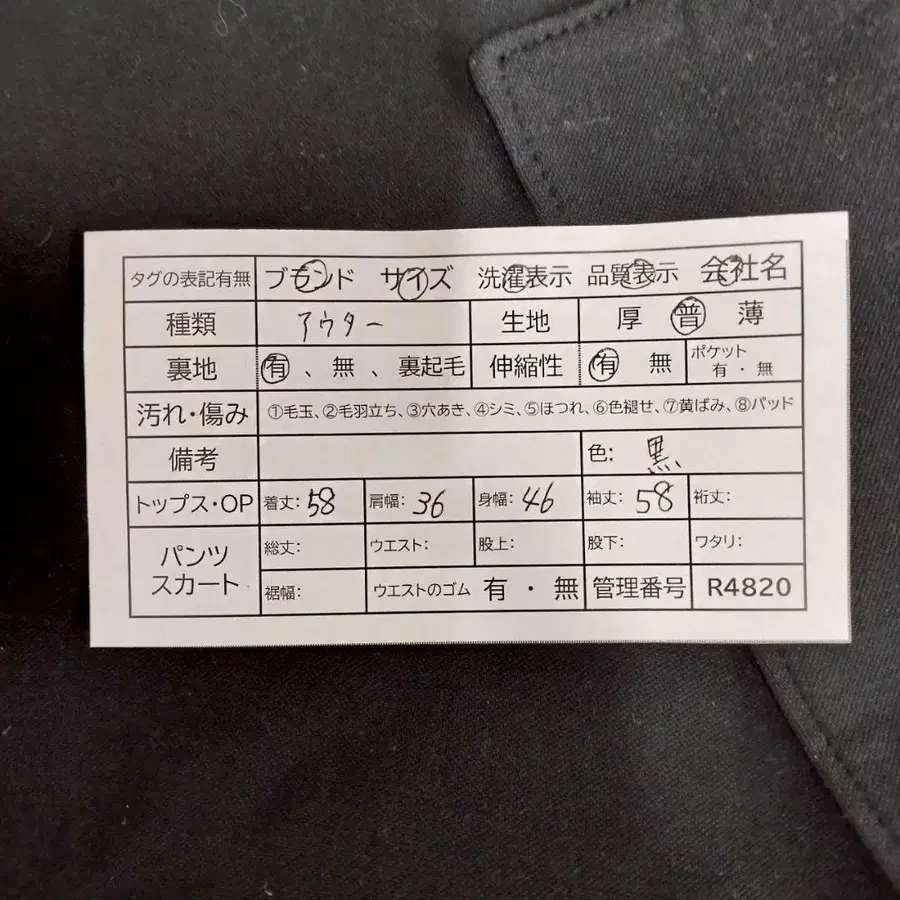 タグの表記有無 ブランド サイズ 洗濯表示 品質表示 会社名
種類 アウター 生地 厚 普 薄
裏地 有 、 無 、 裏起毛 伸縮性 有 無 ポケット 有 ・ 無
汚れ・傷み ①毛玉、②毛羽立ち、③穴あき、④シミ、⑤ほつれ、⑥色褪せ、⑦黄ばみ、⑧パッド
備考 色: 黒
トップス・OP 着丈: 58 肩幅: 36 身幅: 46 袖丈: 58 裄丈:
パンツ スカート 総丈: ウエスト: 股上: 股下: ワタリ:
裾幅: ウエストのゴム 有 ・ 無 管理番号 R4820